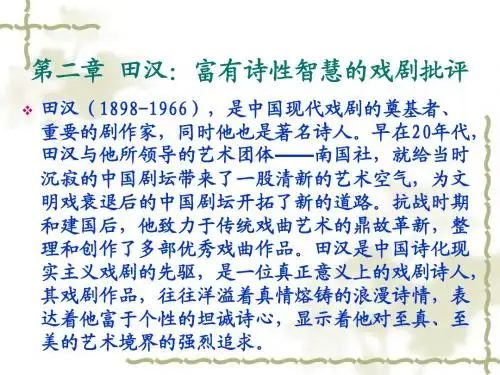 第二章 田汉：富有诗性智慧的戏剧批评
田汉（1898-1966），是中国现代戏剧的奠基者、
重要的剧作家，同时他也是著名诗人。早在20年代，
田汉与他所领导的艺术团体——南国社，就给当时
沉寂的中国剧坛带来了一股清新的艺术空气，为文
明戏衰退后的中国剧坛开拓了新的道路。抗战时期
和建国后，他致力于传统戏曲艺术的鼎故革新，整
理和创作了多部优秀戏曲作品。田汉是中国诗化现
实主义戏剧的先驱，是一位真正意义上的戏剧诗人，
其戏剧作品，往往洋溢着真情熔铸的浪漫诗情，表
达着他富于个性的坦诚诗心，显示着他对至真、至
美的艺术境界的强烈追求。